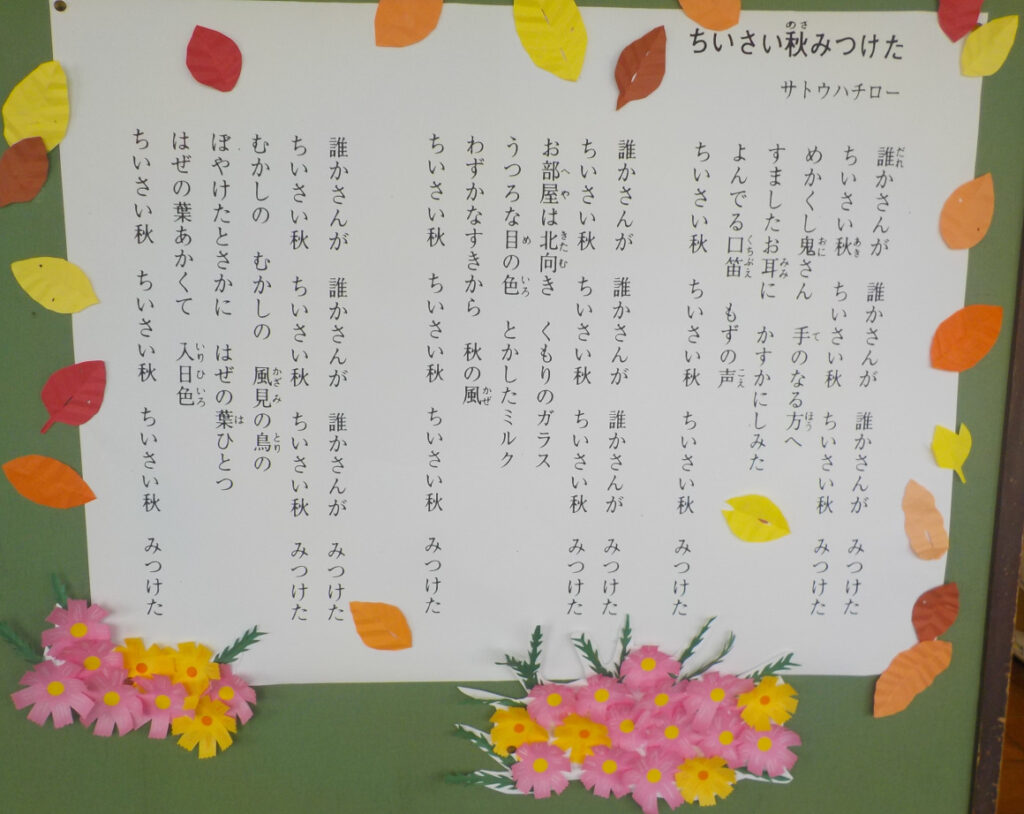 ちいさい秋みつけた
サトウハチロー
誰かさんが 誰かさんが 誰かさんが みつけた
ちいさい秋 ちいさい秋 ちいさい秋 みつけた
めかくし鬼さん 手のなる方へ
すましたお耳に かすかにしみた
よんでる口笛 もずの声
ちいさい秋 ちいさい秋 ちいさい秋 みつけた
誰かさんが 誰かさんが 誰かさんが みつけた
ちいさい秋 ちいさい秋 ちいさい秋 みつけた
お部屋は北向き くもりのガラス
うつろな目の色 とかしたミルク
わずかなすきから 秋の風
ちいさい秋 ちいさい秋 ちいさい秋 みつけた
誰かさんが 誰かさんが 誰かさんが みつけた
ちいさい秋 ちいさい秋 ちいさい秋 みつけた
むかしの むかしの 風見の鳥の
ぼやけたとさかに はぜの葉ひとつ
はぜの葉あかくて 入日色
ちいさい秋 ちいさい秋 ちいさい秋 みつけた